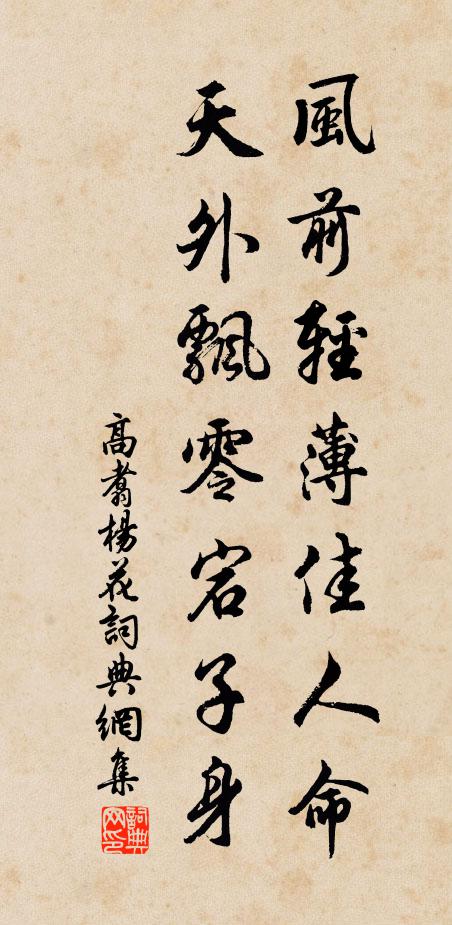 風前輕薄佳人命
天外飄零宕子身
高翥楊花詞典網集
詞典網印